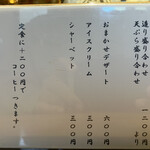 造り盛り合わせ
天ぷら盛り合わせ 一二〇〇円より
おまかせデザート 六〇〇円
アイスクリーム 三〇〇円
シャーベット 三〇〇円
定食に+二〇〇円で
コーヒーつきます。